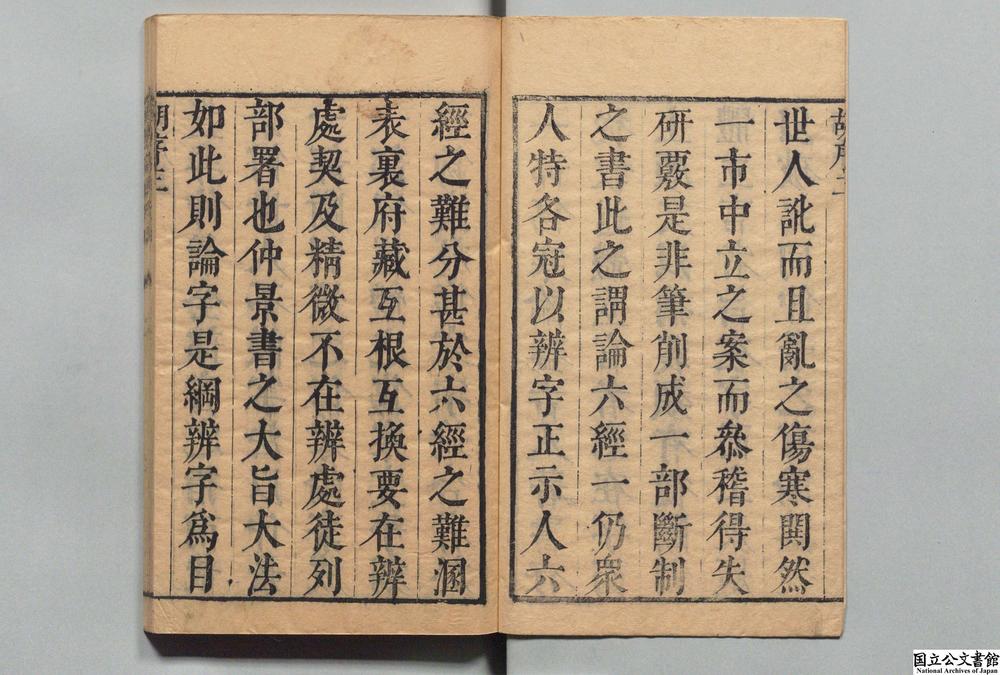 世人訛而且亂之傷寒閧然
一市中立之案而叅稽得失
研覈是非筆削成一部斷制
之書此之謂論六經一仍衆
人特各冠以辨字正示人六
經之難分甚於六經之難溷
表裏府藏互根互換要在辨
處契及精微不在辨處徒列
部署也仲景書之大旨大法
如此則論字是綱辨字爲目
国立公文書館
National Archives of Japan